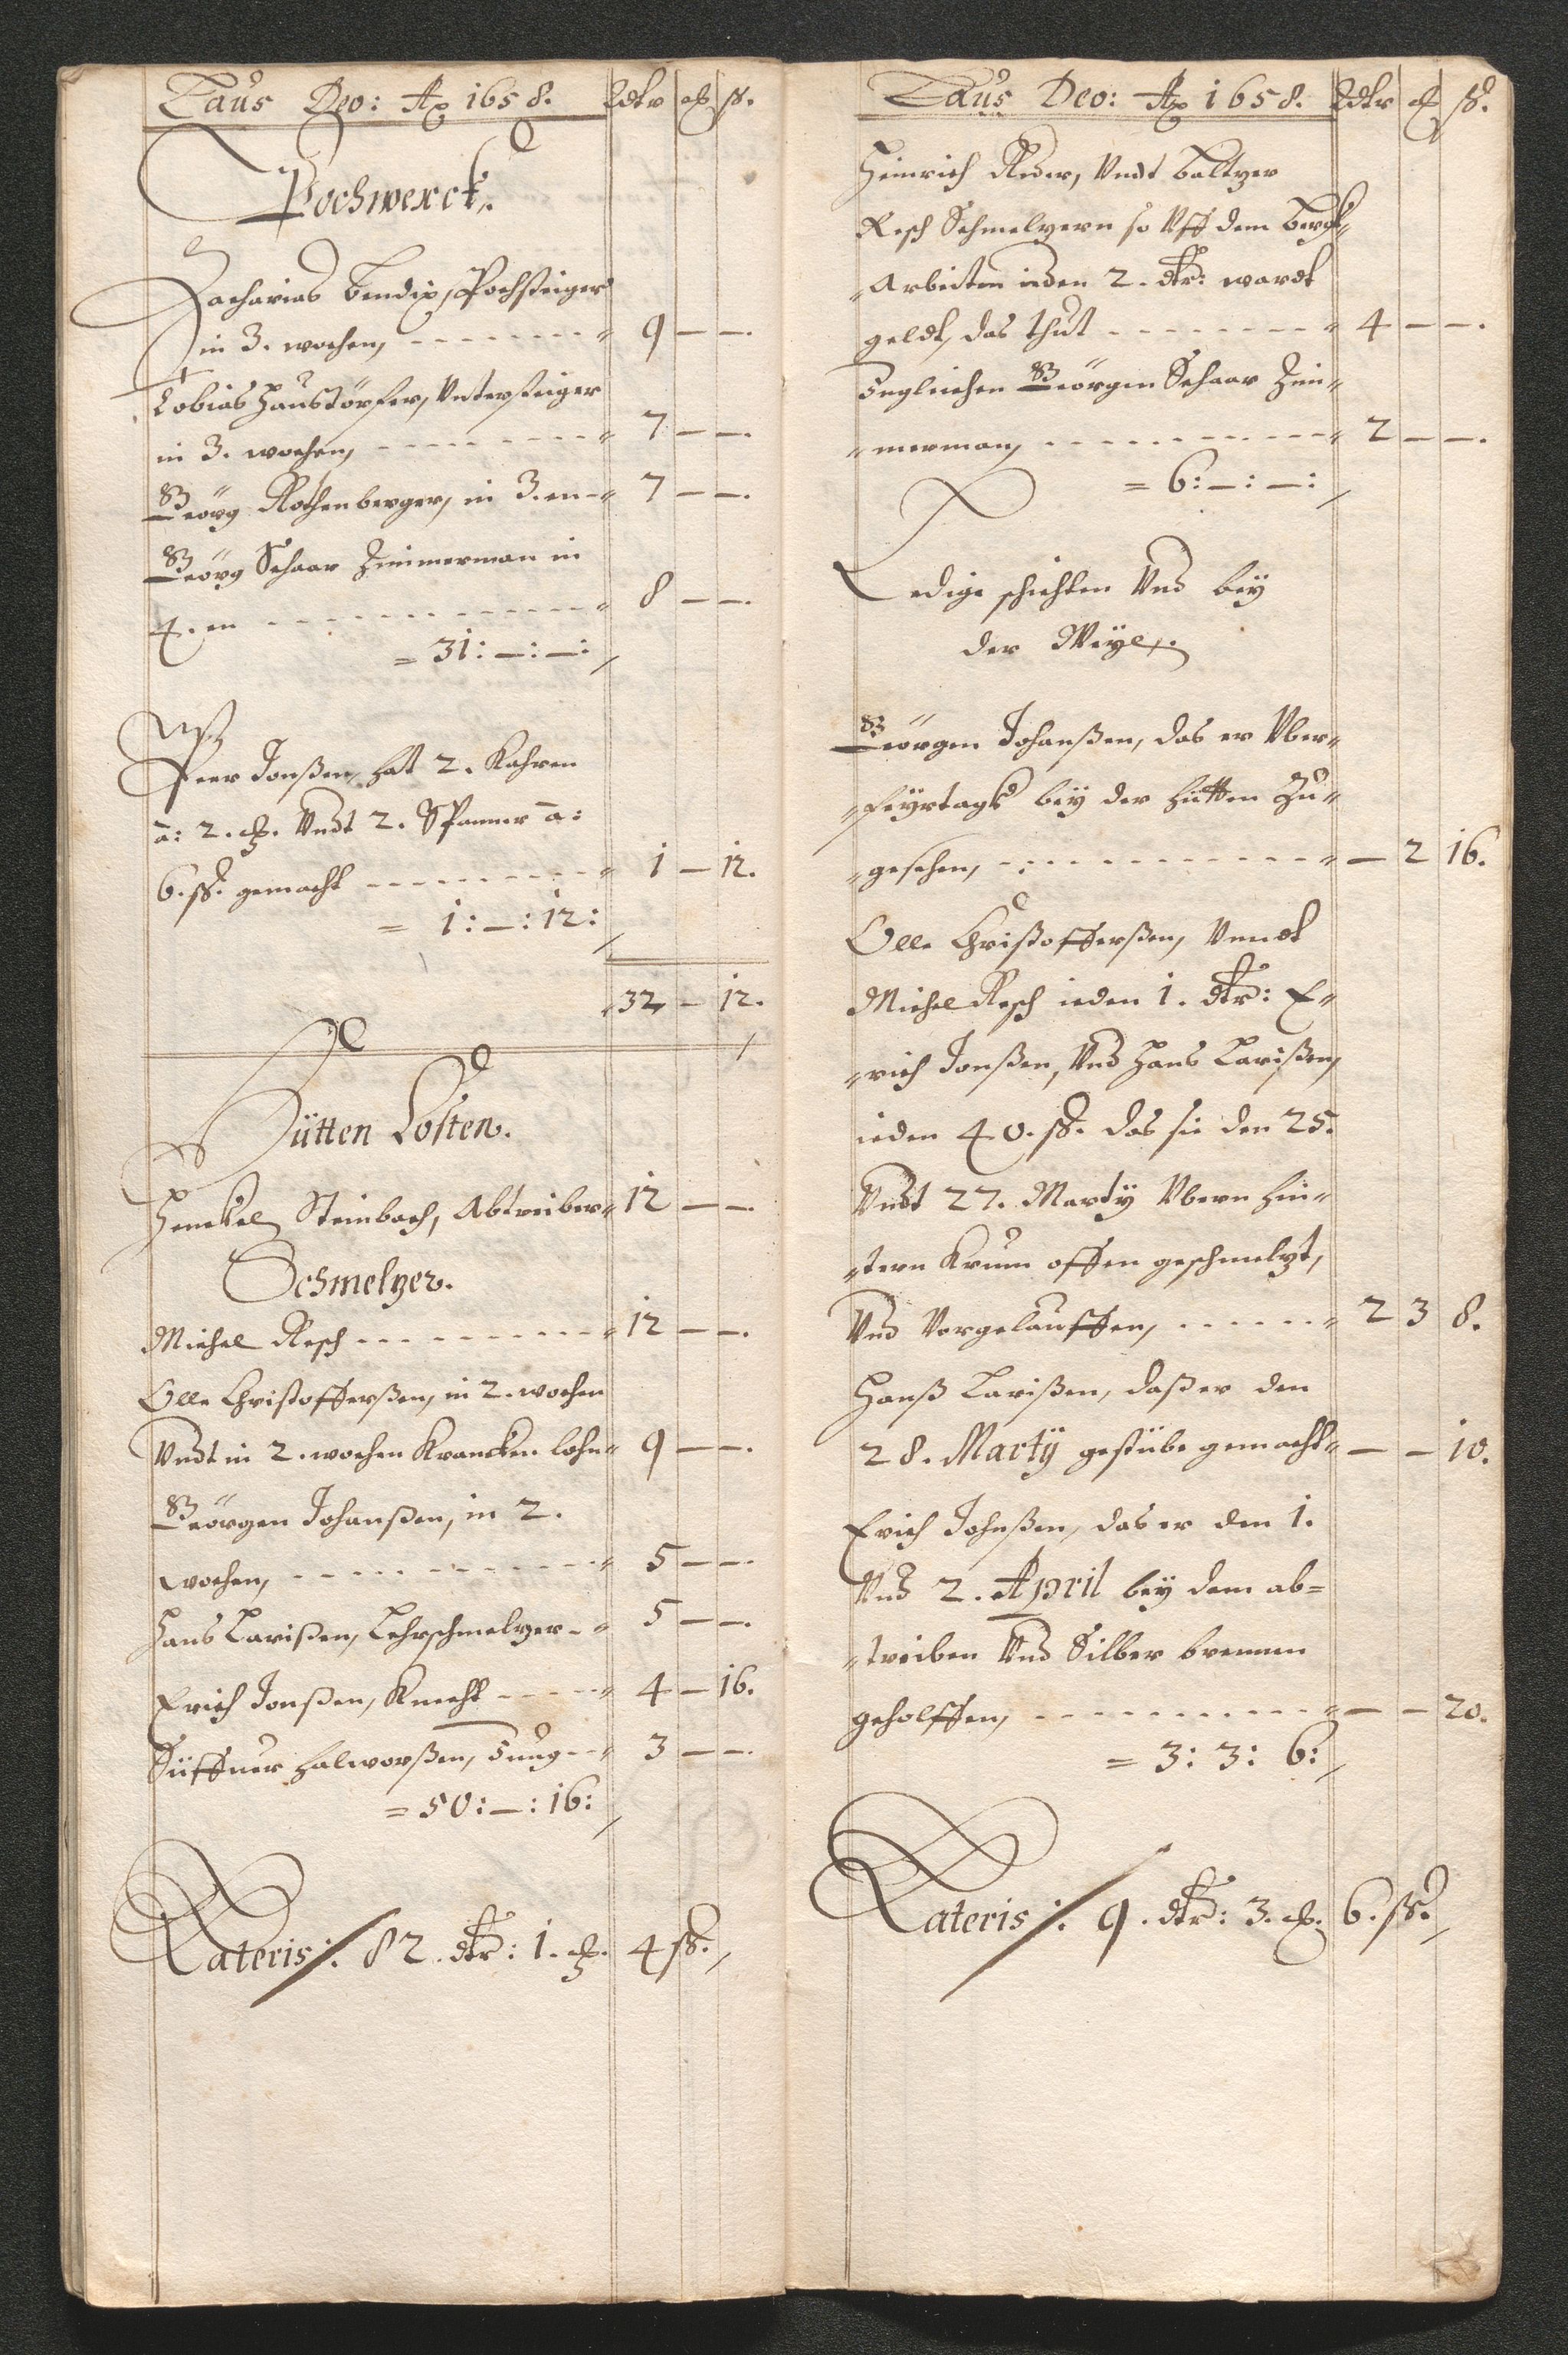 Laus Deo: Ao 1658. Rdtr ort ß.
Pochwerck.
Zacharias Bendix, Pochsteiger
in 3. wochen, 9 — —.
Tobias Haustörfer, Untersteiger
in 3. wochen, 7 — —.
Geörg Rothenberger, in 3. en 7 — —.
Geörg Schaar Zimmerman in
4. en 8 — —.
= 31: —: —:
Peer Jonßen, hat 2. Kahren
a: 2. ort. Undt 2. Spanner a:
6. ß. gemacht 1 — 12.
= 1: —: 12:
32 — 12.
Hütten Costen.
Henckel Steinbach, Abtreiber 12 — —.
Schmelzer.
Michel Resch 12 — —.
Olle Christofferßen, in 2. wochen
Undt in 2. wochen Krancken lohn 9 — —.
Geörgen Johanßen, in 2.
wochen, 5 — —.
Hans Larißen, Lehrschmelzer 5 — —.
Erich Jonßen, Knecht 4 — 16.
Halworßen, Jung 3 — —.
= 50: —: 16:
Lateris: 82. dtr: 1. ort. 4 ß.
Laus Deo: Ao 1658. Rdtr ort ß.
Heinrich Reder, Undt Baltzer
Resch Schmelzern so Uff dem Berge
Arbeiten ieden 2. dtr: wardt
geldt, das thut 4 — —.
Ingleichen Geörgen Schaar Zim
merman, 2 — —.
= 6: —: —:
Ledige schichten Und bey
der Weyle.
Geörgen Johanßen, das er Uber
feyrtags bey der Hütten Zu
gesehen, — 2 16.
Olle Christofferßen, Unndt
Michel Resch ieden 1. dtr: E
rich Jonßen, Und Hans Larißen,
ieden 40. ß. das sie den 25.
Undt 27. Marty Ubern Hin
tern Krum offen geschmelzt,
Und Vorgelauffen, 2 3 8.
Hanß Larißen, daß er den
28. Martÿ gestübe gemacht — — 10.
Erich Johnßen, das er den 1.
Und 2. April bey dem ab=
treiben Und Silber brennen
geholffen, — — 20.
= 3: 3: 6:
Lateris: 9. dtr: 3. ort. 6. ß.